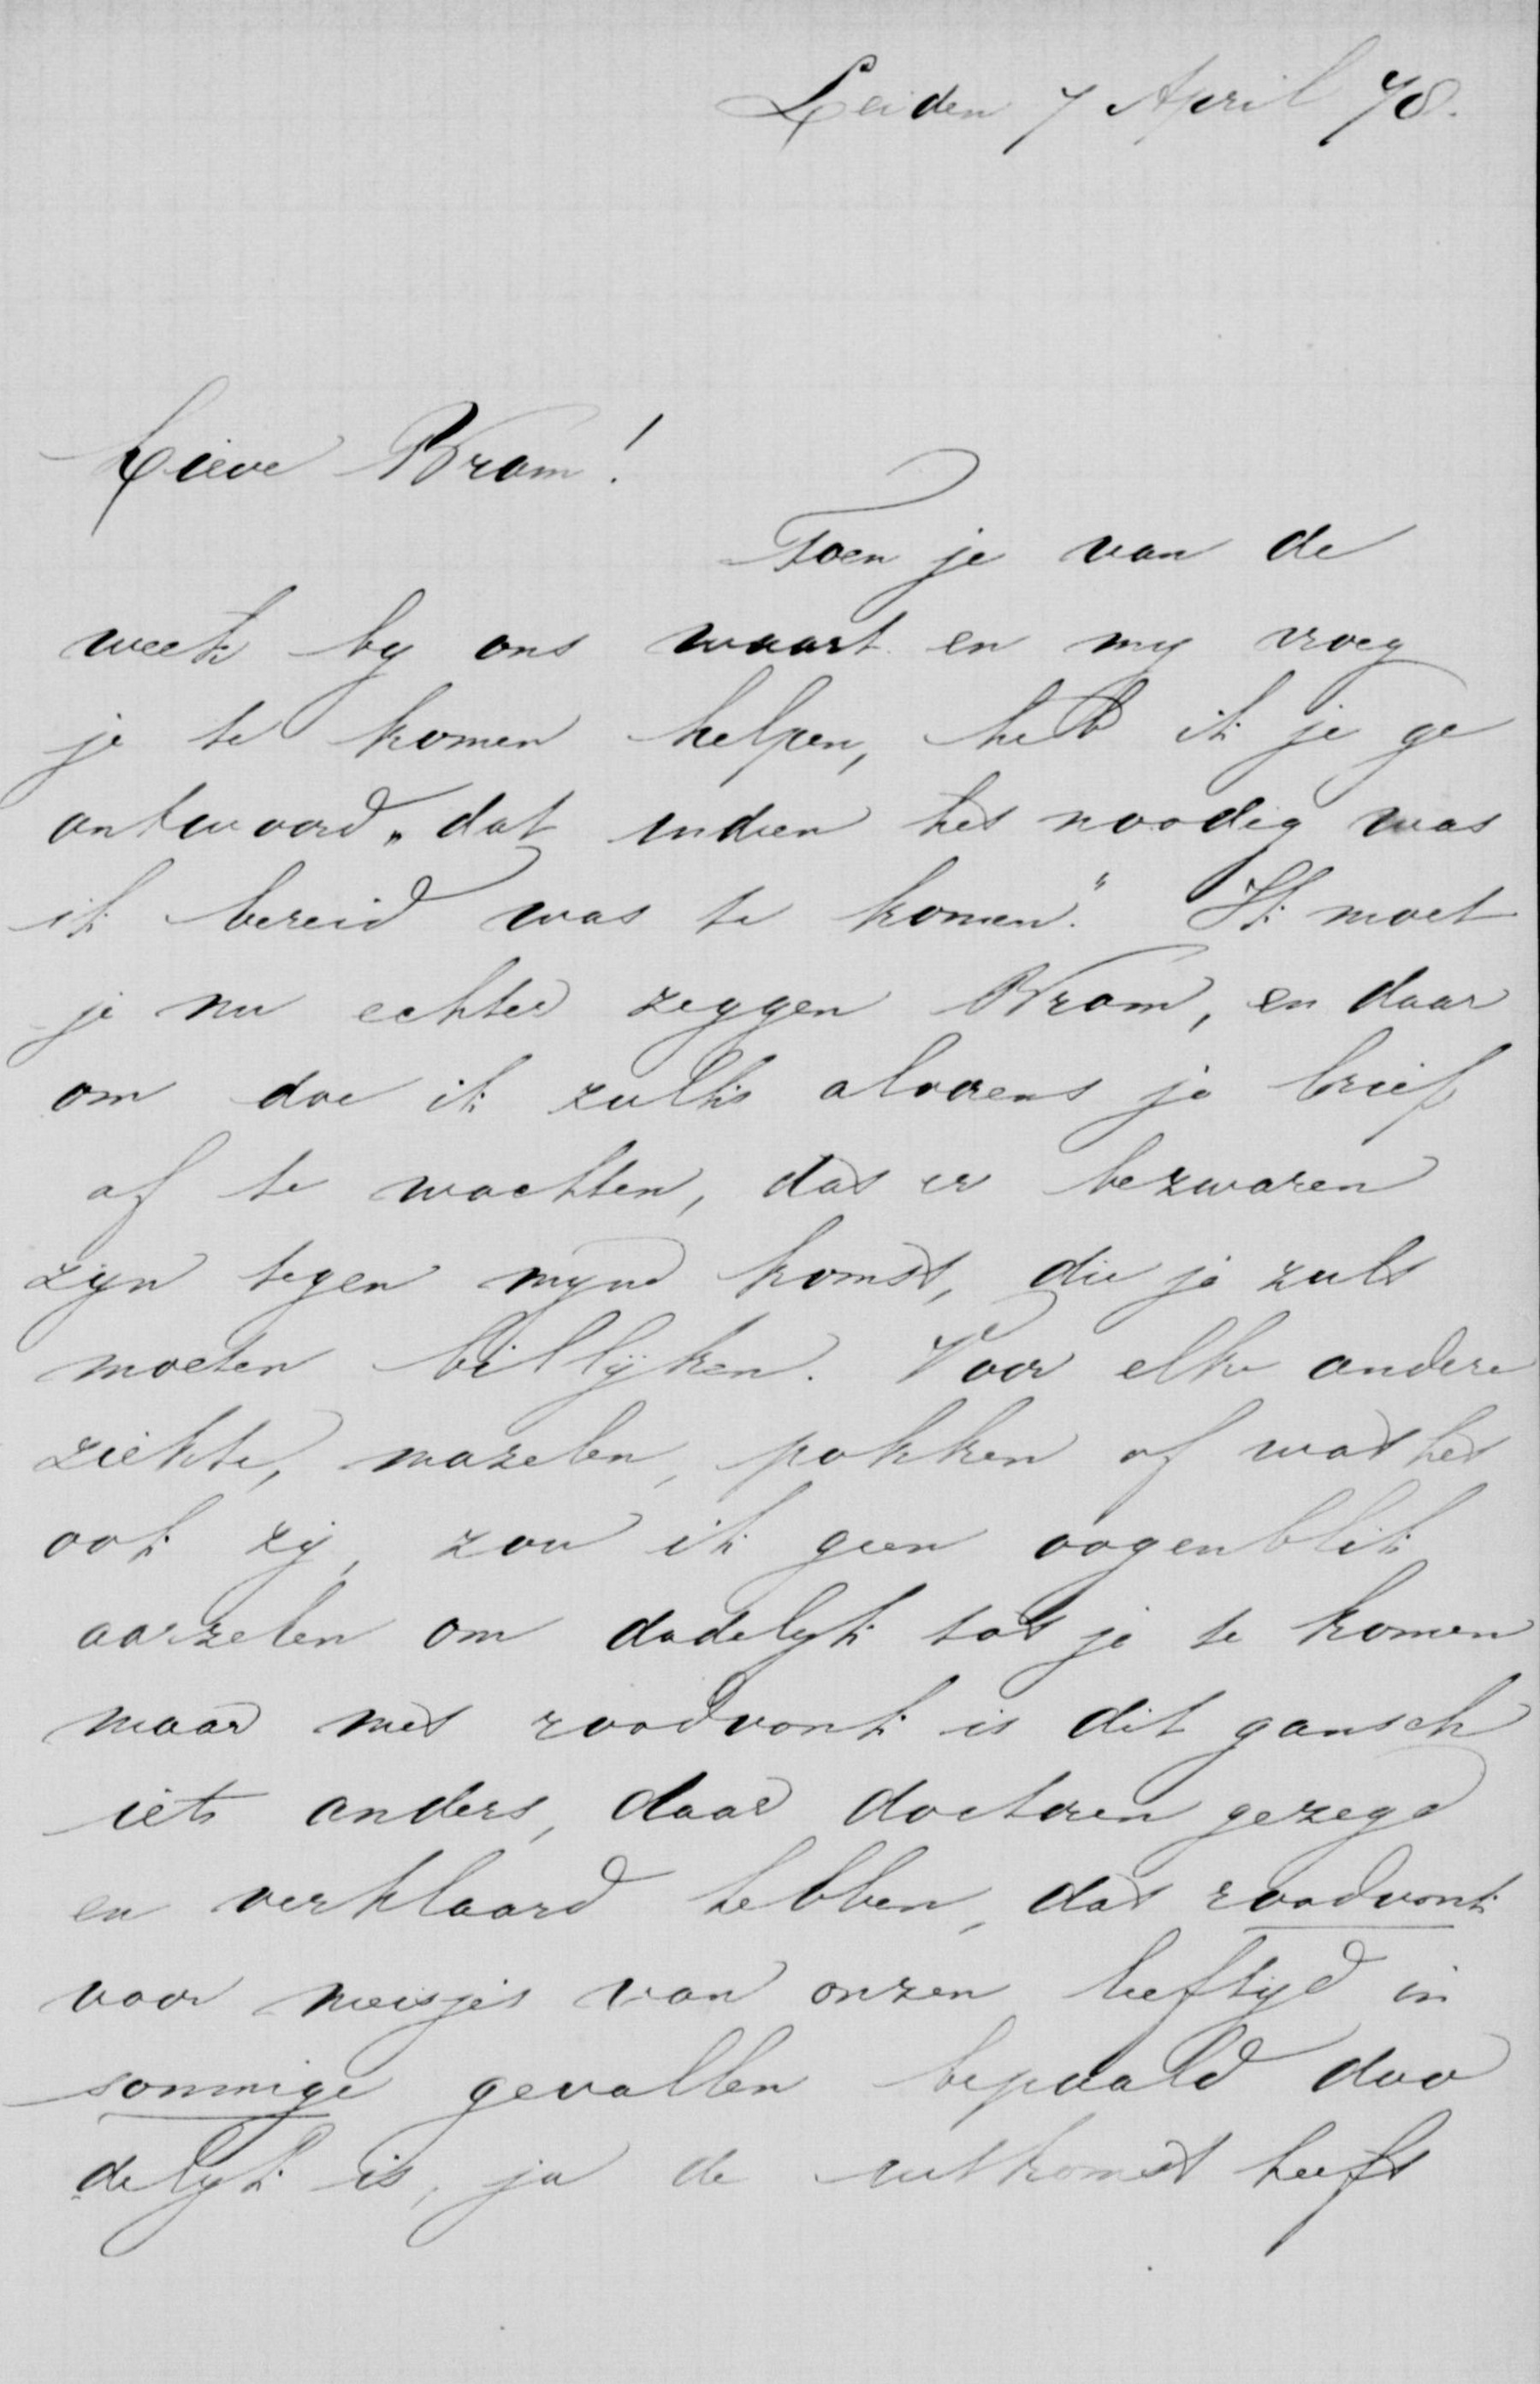 Leiden 7 April 78.
Lieve Bram!
Toen je van de
week by ons waart en my vroeg
je te komen helpen, heb ik je ge
antwoord „dat indien het noodig was
ik bereid was te komen." Ik moet
je nu echter zeggen Bram, en daar
om doe ik zulks alvorens je brief
af te wachten, dat er bezwaren
zyn tegen myne komst, die je zult
moeten billijken. Voor elke andere
ziekte, mazelen, pokken of wat het
ook zij, zou ik geen oogenblik
aarzelen om dadelyk tot je te komen
maar met roodvonk is dit gansch
iets anders, daar doctoren gezegd
en verklaard hebben, dat roodvonk
voor meisjes van onzen leeftyd in
sommige gevallen bepaald doo
delyk is, ja de uitkomst heeft